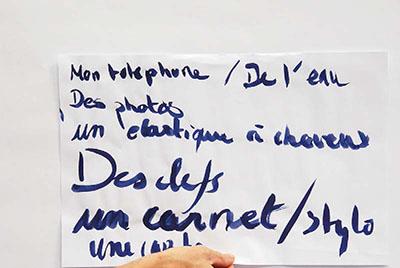 Mon telephone / De l'eau
Des photos
un elastique à cheveux
Des clefs
un carnet/stylo
une carte